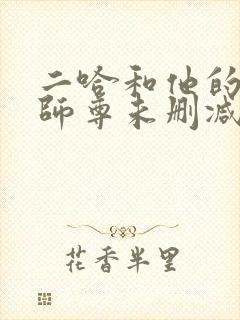 二哈和他的
師尊未删减
花香半里